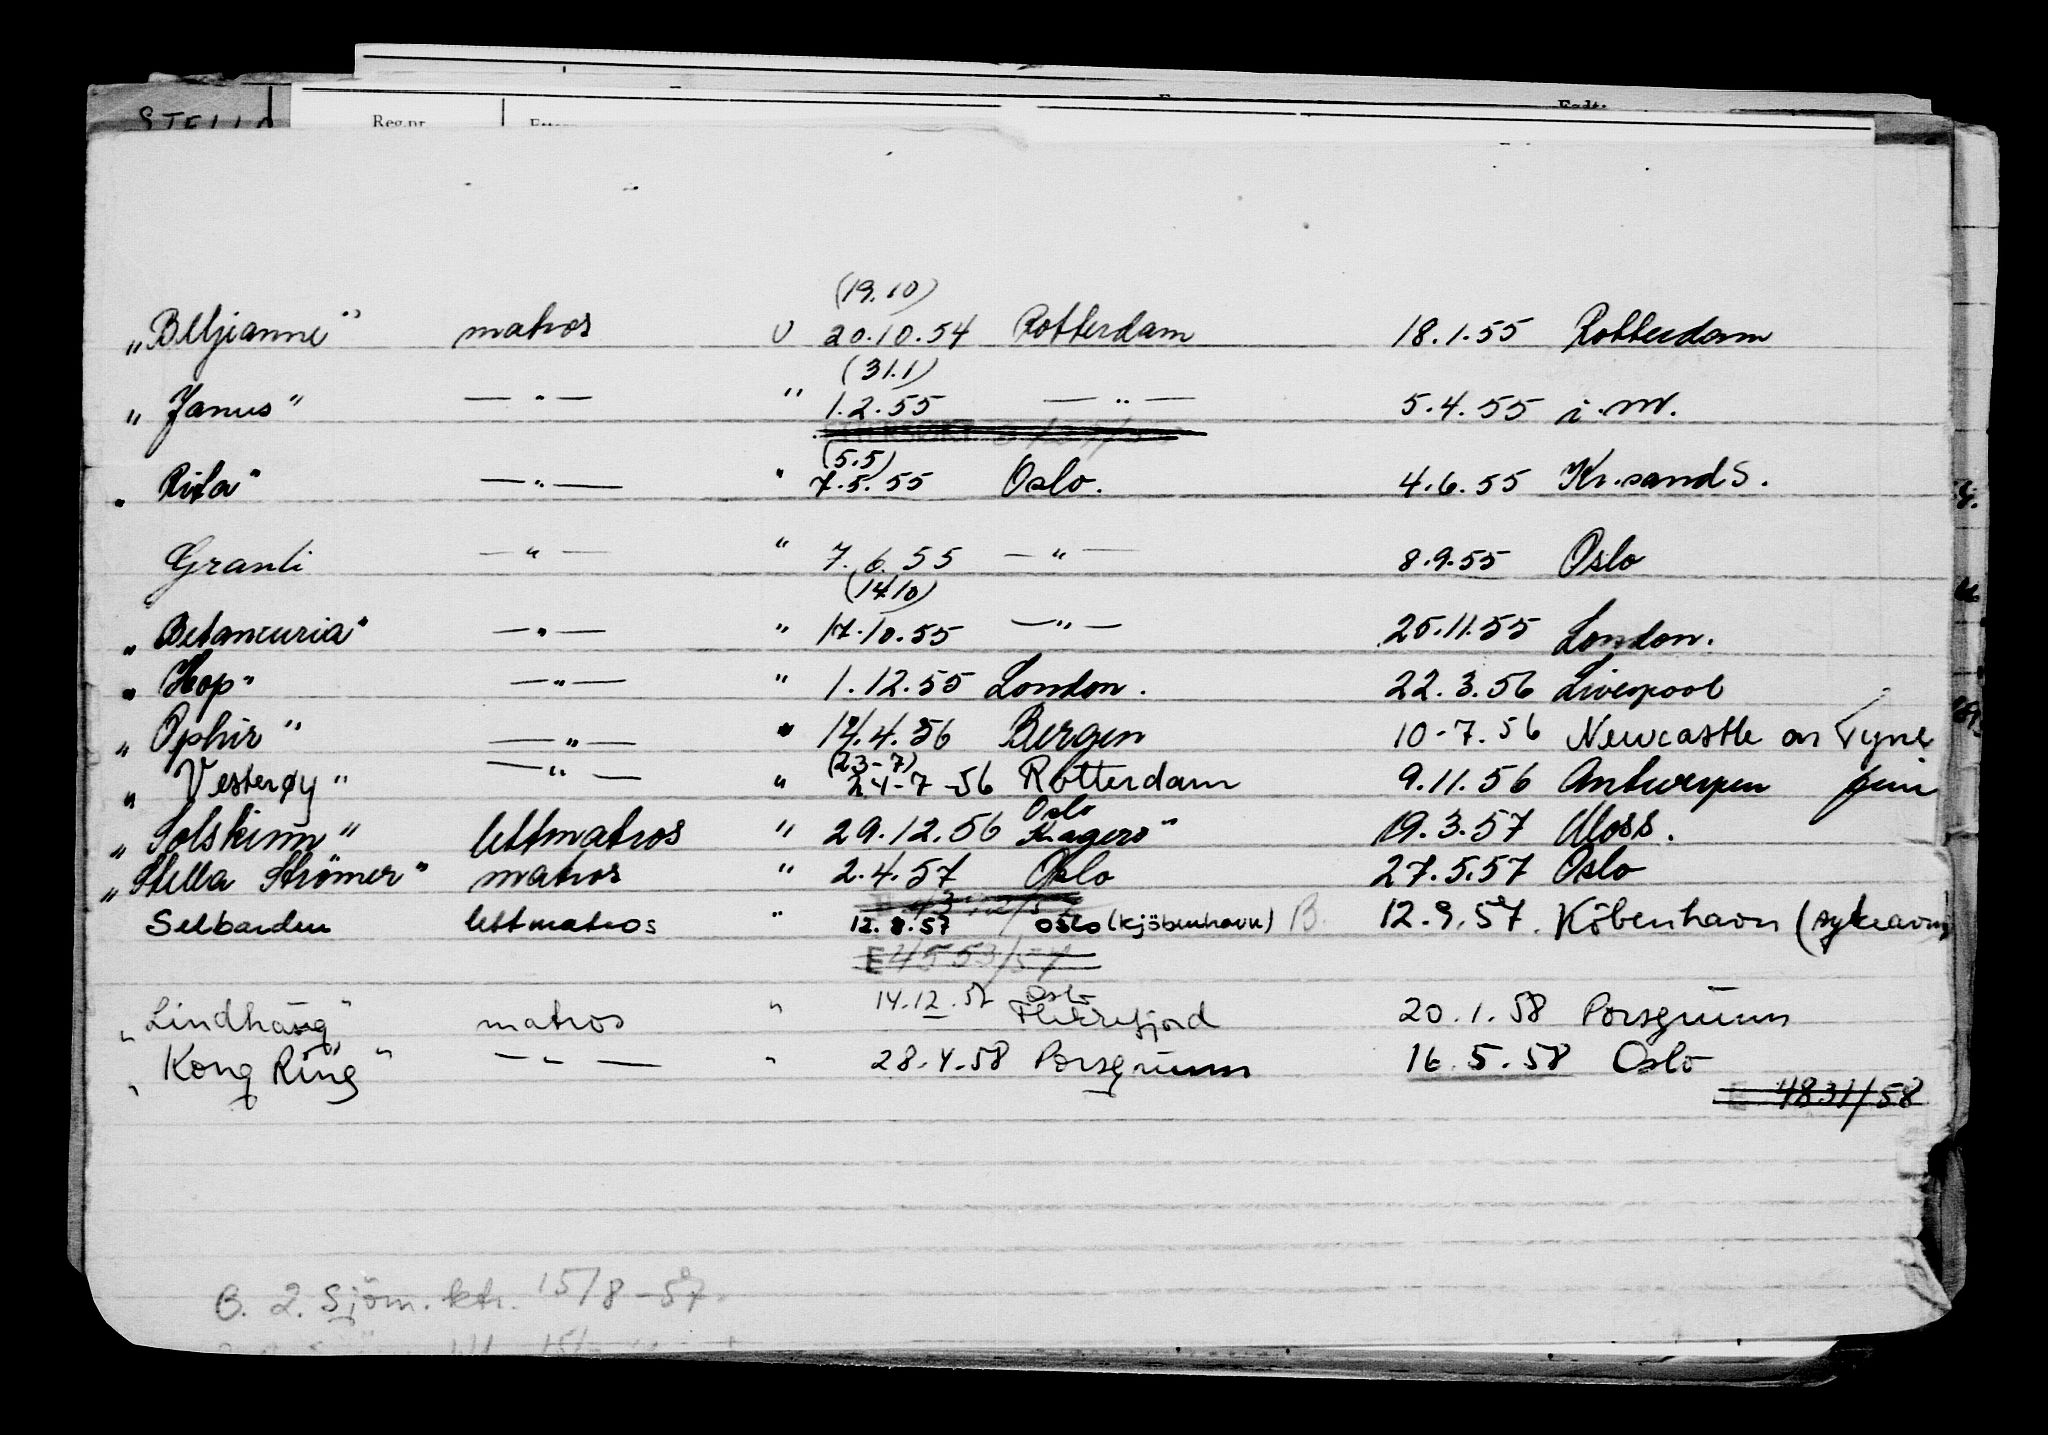 STELLA
Reg.nr. Født:
(19.10)
„Beljeanne" matros U 20.10.54 Rotterdam 18.1.55 Rotterdam
(31.1)
„Janus" — " — " 1.2.55 — " — 5.4.55 i.m.
(5.5)
„Rita" — " — " 7.5.55 Oslo. 4.6.55 Kr.sand S.
Granli — " — " 7.6.55 — " — 8.9.55 Oslo
(14.10)
„Betancuria" — " — " 17.10.55 — " — 25.11.55 London.
„Hop" — " — " 1.12.55 London. 22.3.56 Liverpool
„Ophir" — " — " 14.4.56 Bergen 10-7.56 Newcastle on Tyne
(23-7)
„Vesterøy" — " — " 24-7-56 Rotterdam 9.11.56 Antwerpen
Oslo
„Solskinn" lettmatros " 29.12.56 Kragerö" 19.3.57 Moss.
„Stella Strömer" matros " 2.4.57 Oslo 27.5.57 Oslo
Selbarden lettmatros " 12.8.57 Oslo (Kjöbenhavn) B. 12.9.57. Köbenhavn
E 4553/57
Oslo
„Lindhaug" matros " 14.12.57 Flekkefjord 20.1.58 Porsgrunn
„Kong Ring" — " — " 28.4.58 Porsgrunn 16.5.58 Oslo
E 4831/58
B. 2. Sjöm. ktr. 15/8-57.